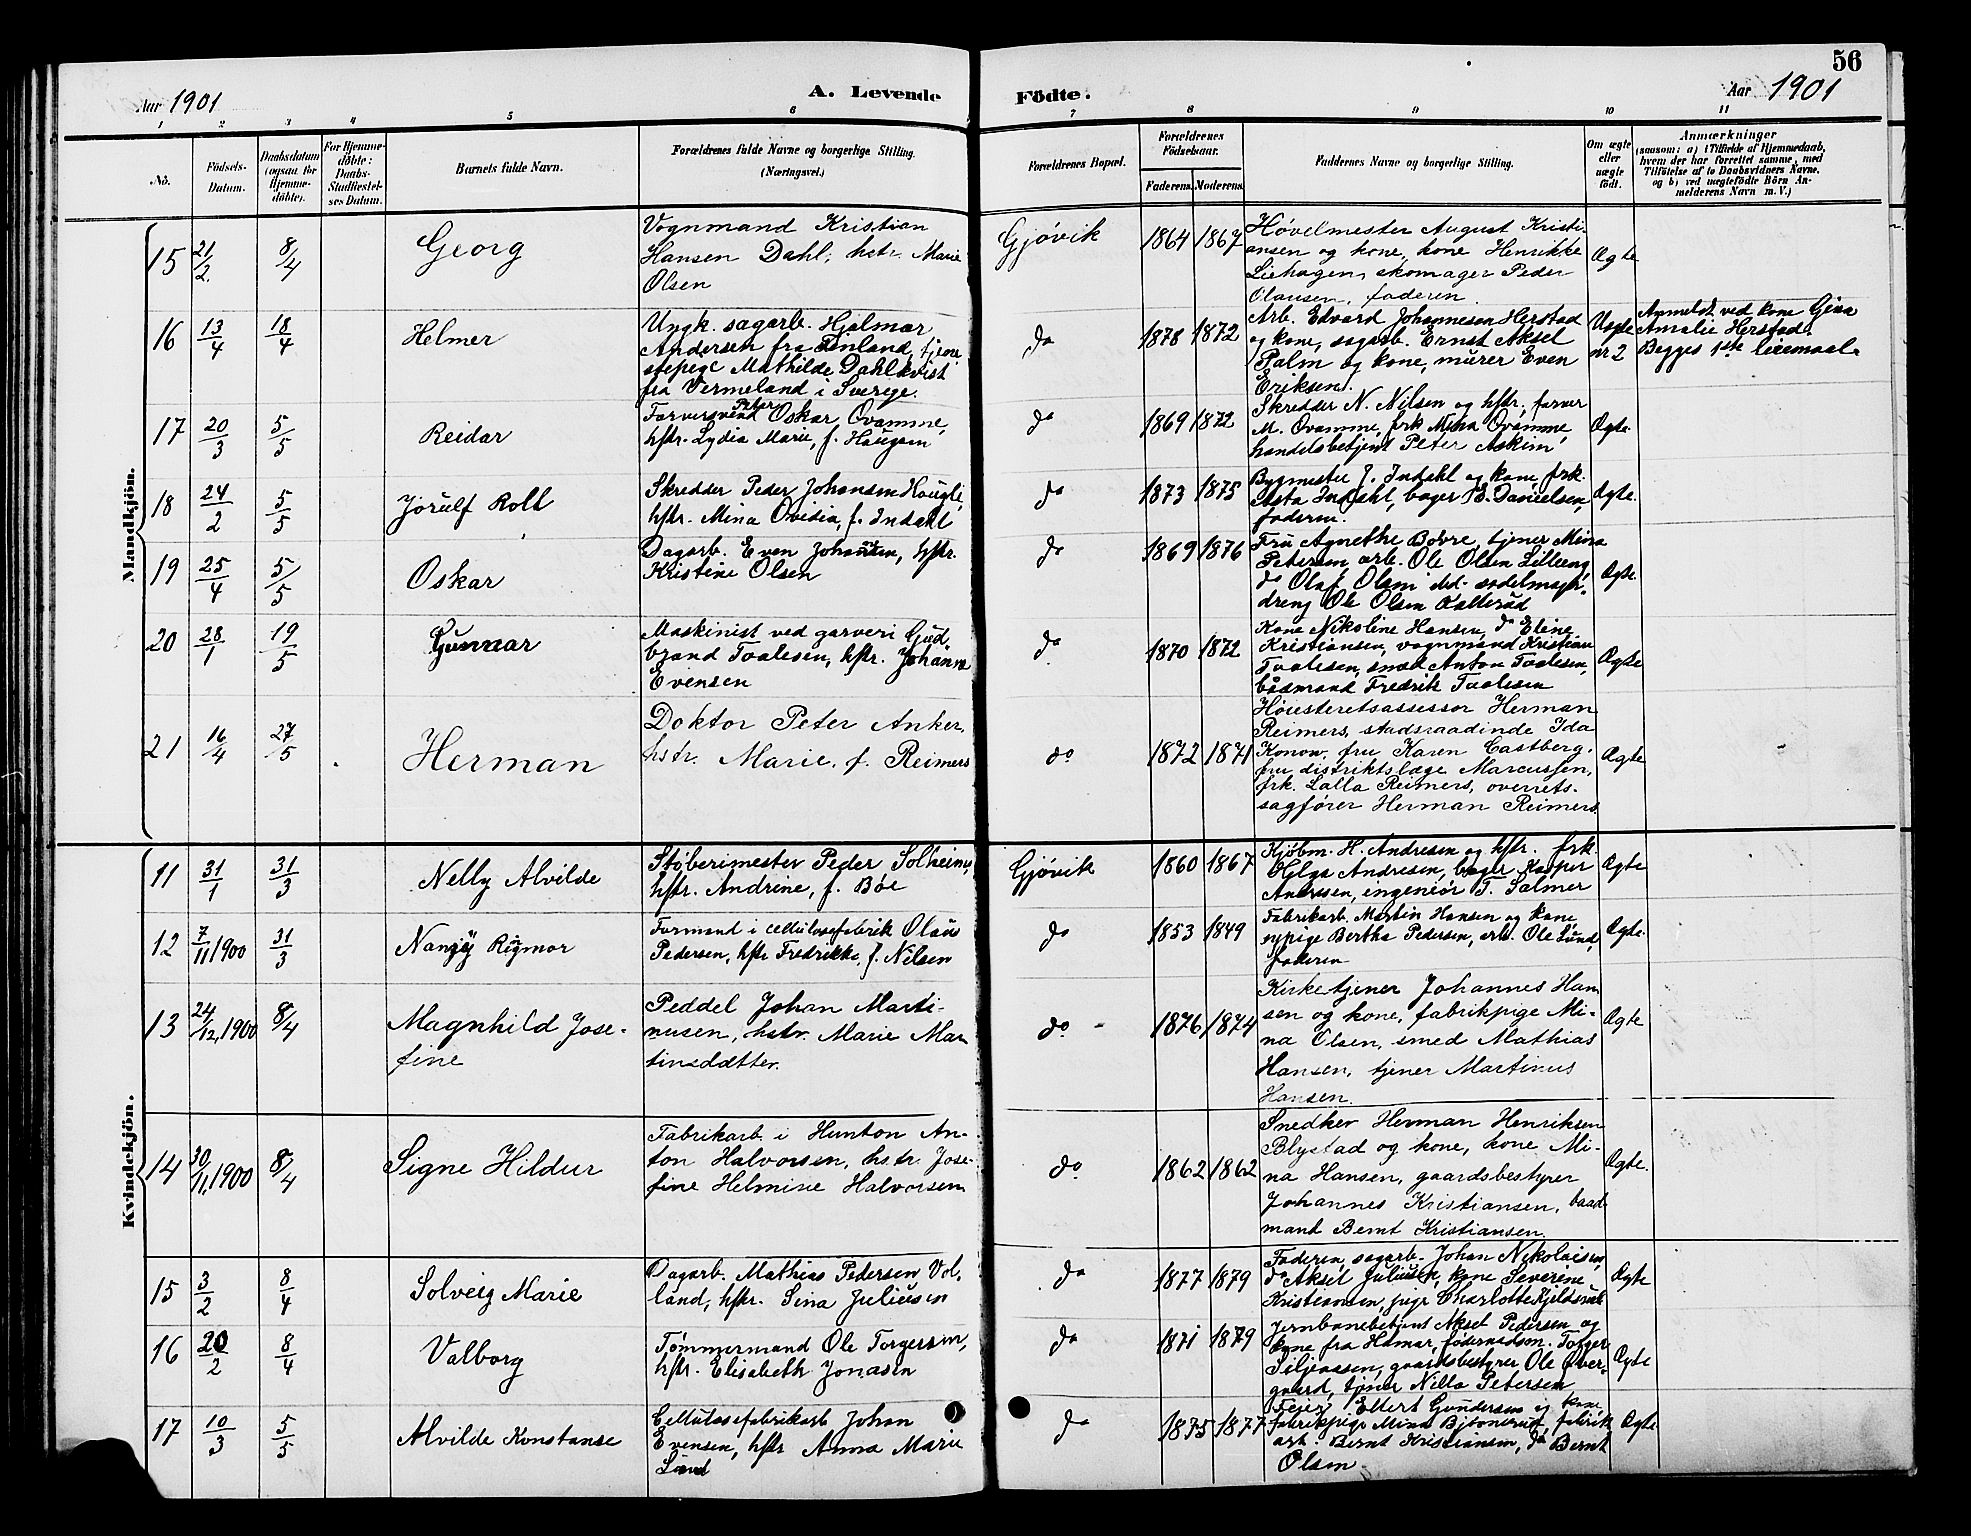 56
Aar 1901
A. Levende
Födte.
Aar 1901
1 2 3 4 5 6 7 8 9 10 11
No.
Födsels-
Datum.
Daabsdatum
(ogsaa for
Hjemme-
döbte).
For Hjemme-
döbte:
Daabs-
Stadfæstel-
ses Datum.
Barnets fulde Navn.
Forældrenes fulde Navne og borgerlige Stilling.
(Næringsvei.)
Forældrenes Bopæl.
Forældrenes
Födselsaar.
Faderens. Moderens.
Faddernes Navne og borgerlige Stilling.
Om ægte
eller
uægte
födt.
Anmærkninger
(saasom: a) i Tilfælde af Hjemmedaab,
hvem der har forrettet samme, med
Tilföielse af to Daabsvidners Navne,
og b) ved uægtefödte Börn An-
melderens Navn m. V.)
Mandkjön.
15 21/2 8/4 Georg
Vognmand Kristian
Hansen Dahl, hstr. Marie
Olsen
Gjövik 1864 1867
Hövelmester August Kristi-
ansen og kone, kone Henrikke
Liehagen, skomager Peder
Olausen, faderen.
Ægte
16 13/4 18/4 Helmer
Ungk. sagarb. Hjalmar
Andersen fra Finland, tjene-
stepige Mathilde Dahlkvist
fra Vermeland i Sverige.
do 1878 1872
Arb. Edvard Johannesen Herstad
og kone, sagarb. Ernst Aksel
Palm og kone, murer Even
Eriksen.
Uægte
nr 2
Anmeldt ved kone Gina
Amalie Herstad.
Begges 1ste leiermaal.
17 20/3 5/5 Reidar
Farversvend Peter Oskar Ovamme,
hstr. Lydia Marie, f. Haugom
do 1869 1872
Skredder N. Nilsen og hstr., farver
M. Ovamme, frk Mina Ovamme
handelsbetjent Peter Askim
Ægte.
18 24/2 5/5 Jörulf Rolt
Skredder Peder Johansen Haugli,
hstr. Mina Ovidia, f. Indahl
do 1873 1875
Bygmester J. Indahl og kone, frk.
Asta Indahl, bager E. Danielsen,
faderen.
Ægte.
19 25/4 5/5 Oskar
Dagarb. Even Johansen, hstr.
Kristine Olsen
do 1869 1876
Fru Agnethe Bovre, tjener Mina
Petersen, arb. Ole Olsen Lilleeng,
do Olaf Olsen ibd. sadelmager-
dreng Ole Olsen Kallerud
Ægte.
20 28/1 19/5 Gunnar
Maskinist ved garveri Gud-
brand Taalesen, hstr. Johanne
Evensen
do 1870 1872
Kone Nikoline Hansen, do Eline
Kristiansen, vognmand Kristian
Taalesen, smed Anton Taalesen,
baadmand Fredrik Taalesen
Ægte
21 16/4 27/5 Herman
Doktor Peter Anker,
hstr. Marie, f. Reimers
do 1872 1871
Höiesteretsassessor Herman
Reimers, stadsraadinde Ida
Konow, fru Karen Castberg,
fru distriktslæge Marcussen,
frk. Lalla Reimers, overrets-
sagförer Herman Reimers
Ægte
Kvindekjön.
11 31/1 31/3 Nelly Alvilde
Stöberimester Peder Solheim,
hstr. Andrine, f. Böe
Gjövik 1860 1867
Kjöbm. H. Andresen og hstr. frk.
Helga Andresen, bager Kasper
Andresen, ingeniör T. Salmer
Ægte
12 7/11 1900 31/3 Nanny Rigmor
Formand i cellulosefabrik Olaus
Pedersen, hstr Fredrikke, f. Nilsen
do 1853 1849
Fabrikarb. Martin Hansen og kone
sypige Bertha Pedersen, arb. Ole Lund,
faderen
Ægte.
13 24/12, 1900 8/4 Magnhild Jose-
fine
Peddel Johan Marti-
nusen, hstr. Marie Mar-
tinsdatter.
do 1876 1874
Kirketjener Johannes Han
sen og kone, fabrikpige Mi-
na Olsen, smed Mathias
Hansen, tjener Martinus
Hansen.
Ægte
14 30/11, 1900 8/4 Signe Hildur
Fabrikarb. i Hunton An-
ton Halvorsen, hstr. Jose-
fine Helmine Halvorsen
do. 1862 1862
Snedker Herman Henriksen
Blystad og kone, kone Mi-
na Hansen, gaardsbestyrer
Johannes Kristiansen, baad-
mand Bernt Kristiansen.
Ægte.
15 3/2 8/4 Solveig Marie
Dagarb. Mathias Pedersen Vol-
land, hstr. Sina Juliusen
do 1877 1879
Faderen, sagarb. Johan Nikolaisen,
do Aksel Juliusen, kone Severine
Kristiansen, pige Charlotte
Ægte
16 20/2 8/4 Valborg
Tömmermand Ole Torgersen,
hstr. Elisabeth Jonasen
do 1871 1879
Jernbanebetjent Aksel Pedersen og
kone fra Hamar, födemadsm. Torger
Siljeaasen, gaardsbestyrer Ole Över-
gaard, tjener Nilla Petersen
Ægte
17 10/3 5/5 Alvilde Konstanse
Cellulosefabrikarb Johan
Evensen, hstr Anna Marie
Lund
do 1875 1877
Feier Ellert Gundersen og kone,
fabrikpige Mina fabrik
arb. Bernt Kristiansen, do Bernt
Olsen.
Ægte